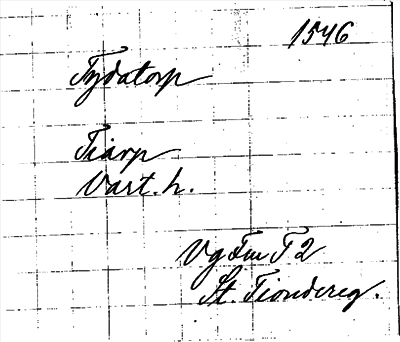 1546
Tydatorp
Tiarp
Vart. h.
Vg Fm T 2
St. Tiondereg.